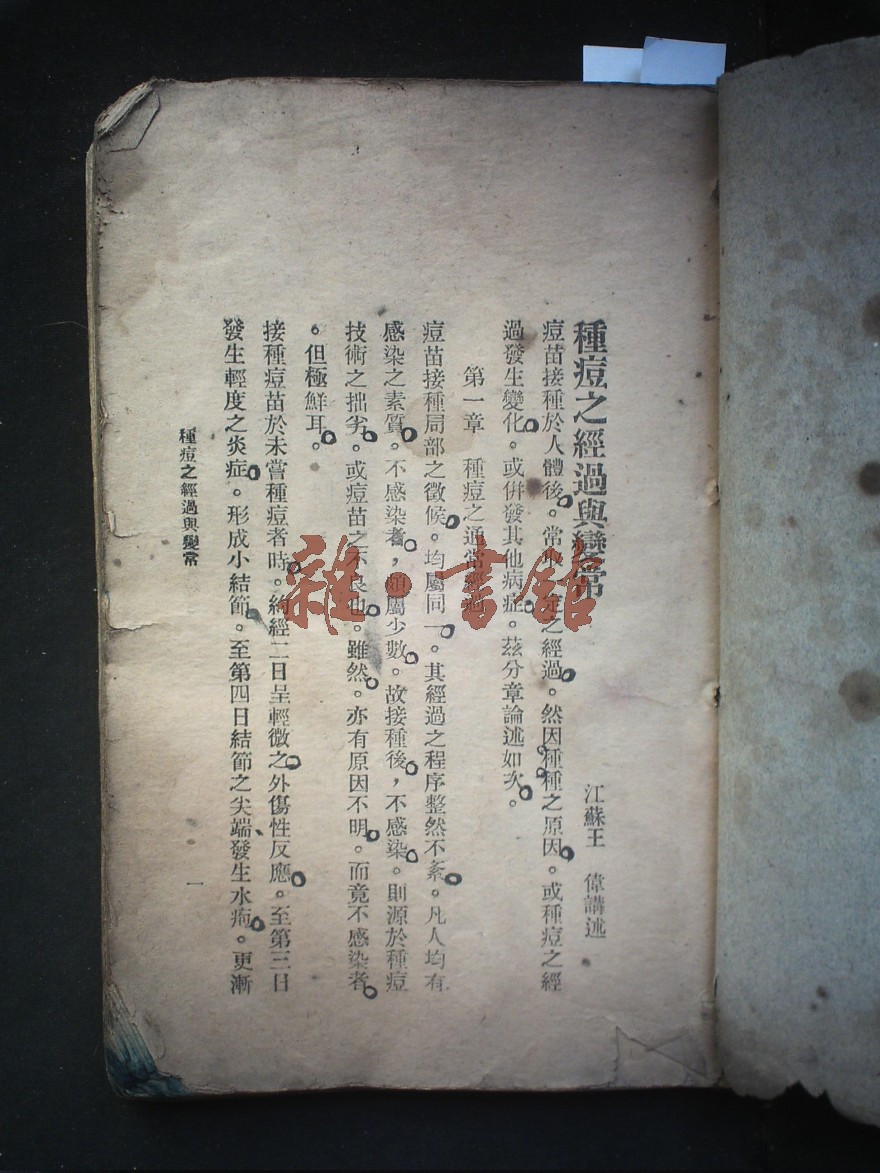 種痘之經過與變常
江蘇王　偉講述
痘苗接種於人體後。常取一定之經過。然因種種之原因。或種痘之經
過發生變化。或併發其他病症。茲分章論述如次。
第一章　種痘之通常經過
痘苗接種局部之徵候。均屬同一。其經過之程序整然不紊。凡人均有
感染之素質。不感染者，頗屬少數。故接種後，不感染。則源於種痘
技術之拙劣。或痘苗之不良也。雖然。亦有原因不明。而竟不感染者
。但極鮮耳。
接種痘苗於未嘗種痘者時。約經二日呈輕微之外傷性反應。至第三日
發生輕度之炎症。形成小結節。至第四日結節之尖端、發生水疱。更漸
種痘之經過與變常
一
雜·書館